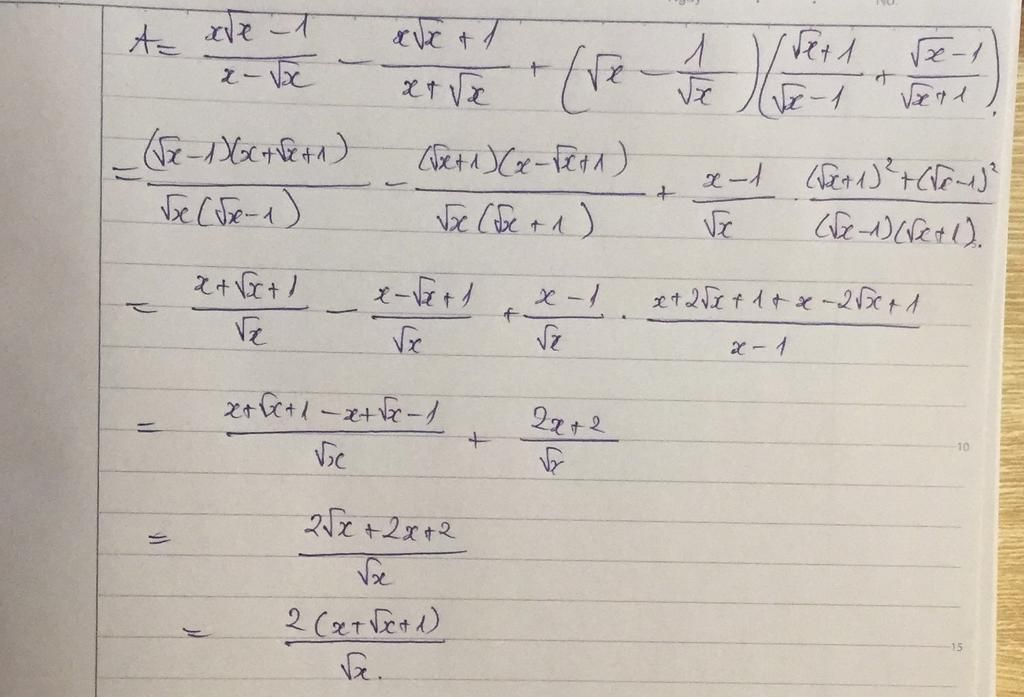 No.
A = \frac{x\sqrt{x} - 1}{x - \sqrt{x}} - \frac{x\sqrt{x} + 1}{x + \sqrt{x}} + \left(\sqrt{x} - \frac{1}{\sqrt{x}}\right)\left(\frac{\sqrt{x}+1}{\sqrt{x}-1} + \frac{\sqrt{x}-1}{\sqrt{x}+1}\right).
= \frac{(\sqrt{x}-1)(x+\sqrt{x}+1)}{\sqrt{x}(\sqrt{x}-1)} - \frac{(\sqrt{x}+1)(x-\sqrt{x}+1)}{\sqrt{x}(\sqrt{x}+1)} + \frac{x-1}{\sqrt{x}} \cdot \frac{(\sqrt{x}+1)^2+(\sqrt{x}-1)^2}{(\sqrt{x}-1)(\sqrt{x}+1)}.
= \frac{x+\sqrt{x}+1}{\sqrt{x}} - \frac{x-\sqrt{x}+1}{\sqrt{x}} + \frac{x-1}{\sqrt{x}} \cdot \frac{x+2\sqrt{x}+1+x-2\sqrt{x}+1}{x-1}
= \frac{x+\sqrt{x}+1-x+\sqrt{x}-1}{\sqrt{x}} + \frac{2x+2}{\sqrt{x}}
10
= \frac{2\sqrt{x}+2x+2}{\sqrt{x}}
= \frac{2(x+\sqrt{x}+1)}{\sqrt{x}}.
15